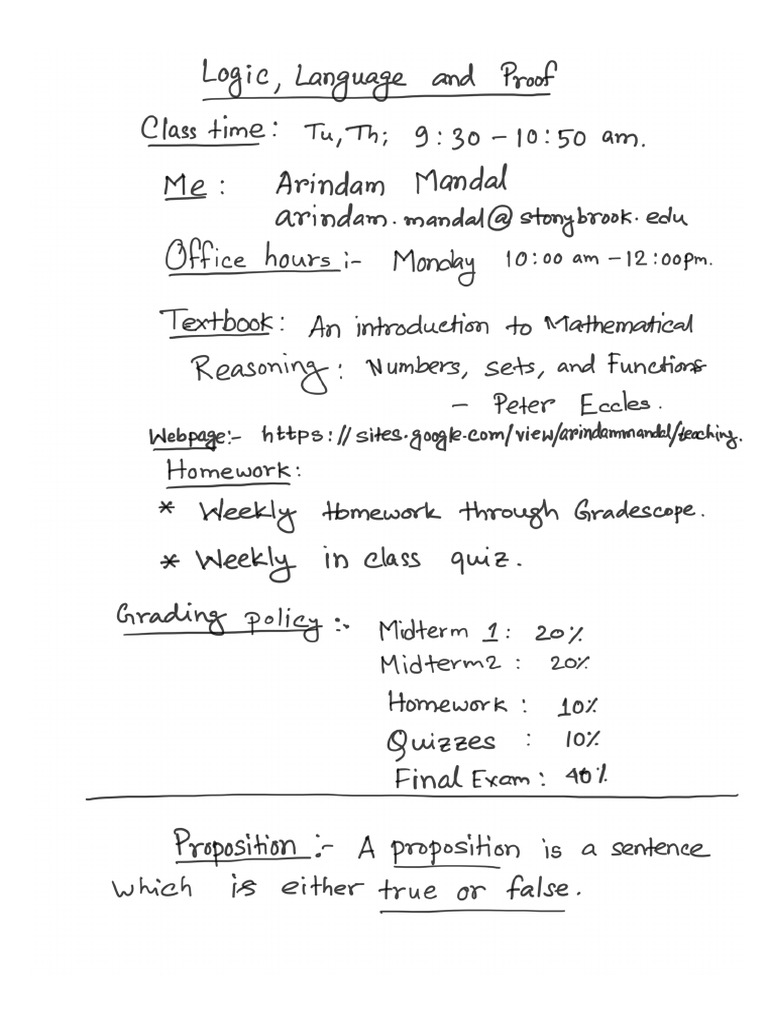 Logic, Language and Proof
Class time: Tu, Th; 9:30 - 10:50 am.
Me: Arindam Mandal
arindam.mandal@stonybrook.edu
Office hours:- Monday 10:00 am - 12:00pm.
Textbook: An introduction to Mathematical
Reasoning: Numbers, sets, and Functions
- Peter Eccles.
Webpage:- https://sites.google.com/view/arindammandal/teaching.
Homework:
* Weekly Homework through Gradescope.
* Weekly in class quiz.
Grading policy:- Midterm 1: 20%
Midterm2: 20%
Homework: 10%
Quizzes: 10%
Final Exam: 40%
Proposition:- A proposition is a sentence
which is either true or false.